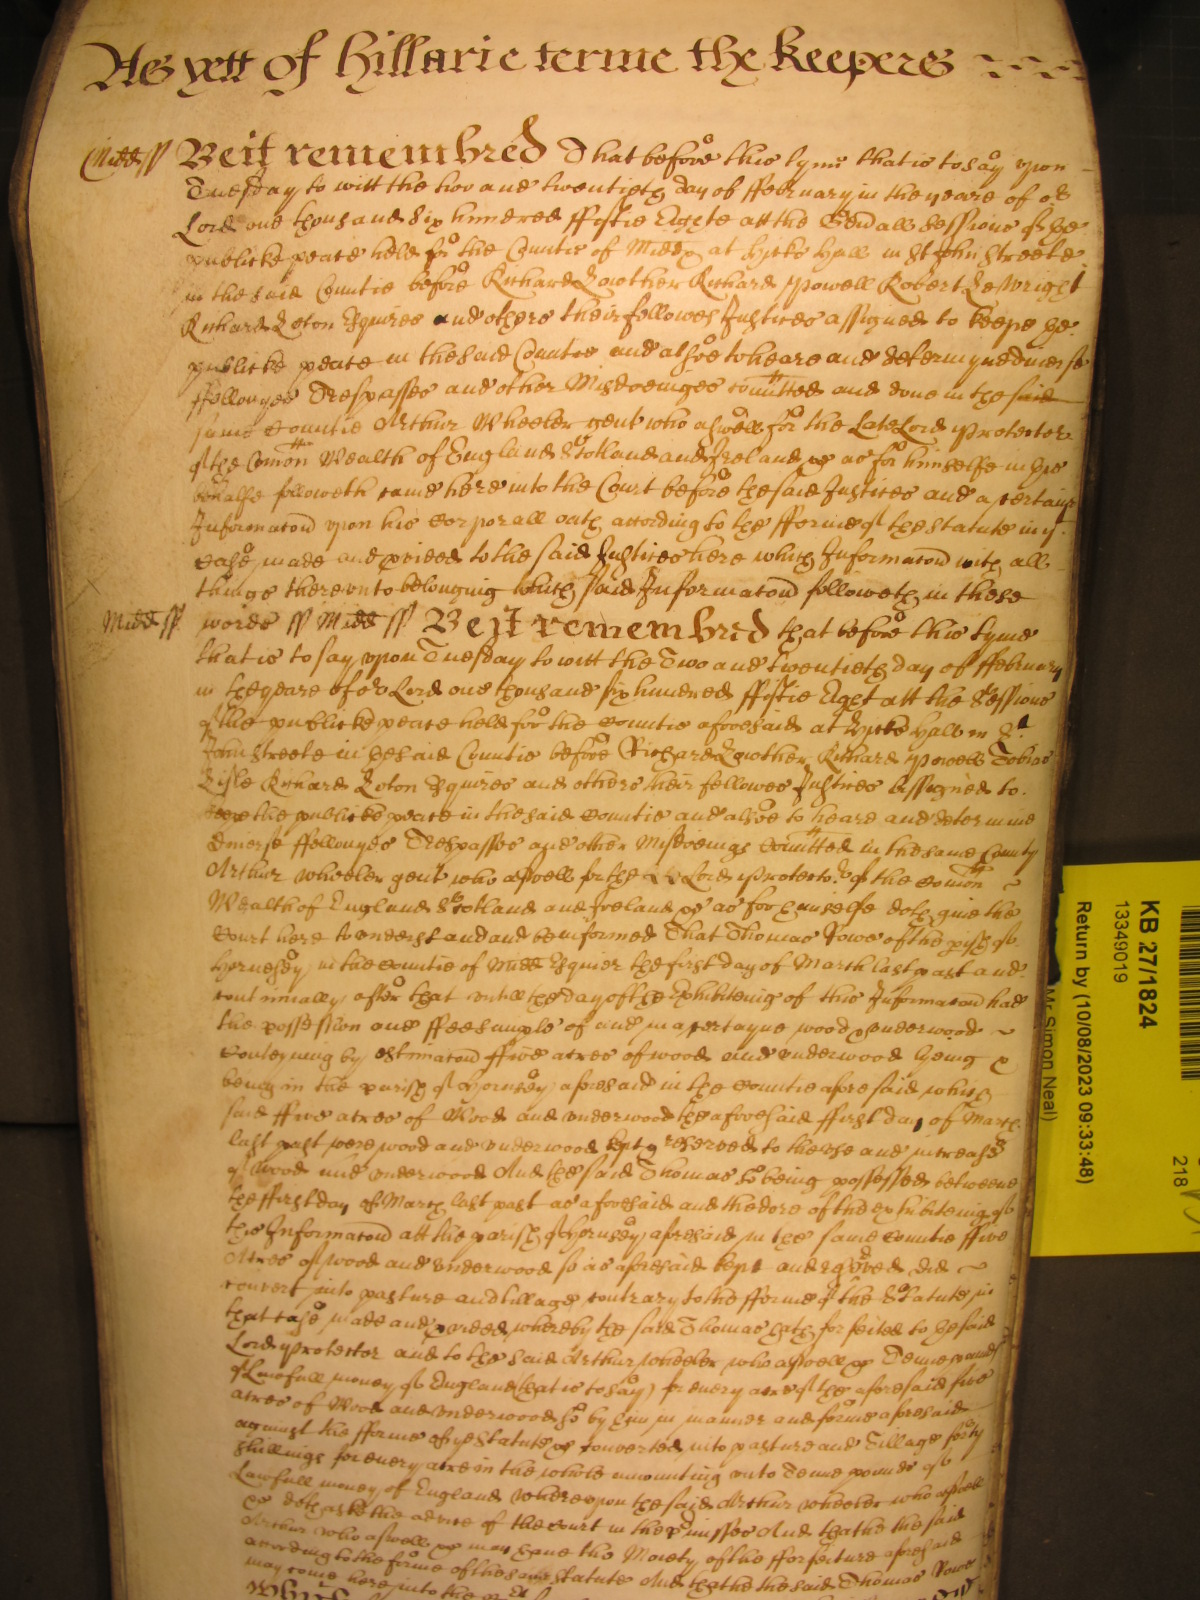 As yett of Hillarie terme the Keepers
Midd ss Be it remembred That before this tyme that is to say upon
Tuesday to witt the two and twentieth day of ffebruary in the yeare of or
Lord one thousand six hundred ffiftie Eight att the Gen'all Sessions of the
publicke peace held for the Countie of Middx at Hicks Hall in St John Streete
in the said Countie before Richard Lowther Richard Powell Robert Le Wright
Richard Loton Esquires and others their fellowes Justices assigned to keepe the
publicke peace in the said Countie and alsoe to heare and determyne divers
ffellonyes Trespasses and other Misdoeinges comitted and done in the said
same Countie Arthur Wheeler gent who aswell for the Late Lord Protector
of the Comon Wealth of England Scotland and Ireland &c as for himselfe in this
behalfe followeth came here into the Court before the said Justices and a certaine
Informacon upon his Corporall oath according to the fforme of the Statute in yt
Case made and p'vided to the said Justices here which Informacon with all
things thereunto belonging which said Informacon followeth in these
Midd ss words ss Midd ss Be It remembred that before this tyme
that is to say upon Tuesday to witt the Two and twentieth day of ffebruary
in the yeare of or Lord one thousand six hundred ffiftie Eight att the Sessions
of the publicke peace held for the Countie aforesaid at Hicks Hall in St
John Streete in the said Countie before Richard Lowther Richard Powell Tobias
Lisle Richard Loton Esquires and others their fellowes Justices Assigned to
keepe the publicke peace in the said Countie and alsoe to heare and determine
diverse ffellonyes Trespasses and other Misdoeings Comitted in the same County
Arthur Wheeler gent who aswell for the Lord Protector of the Comon
Wealth of England Scotland and Ireland &c as for himselfe doth give the
Court here to understand and be informed That Thomas Rowe of the p'ish of
Hornesey in the Countie of Midd Esquier the first day of March last past and
continually after that untill the day of the Exhibiteing of this Informacon had
the possession and ffee simple of and in a certayne wood & underwood
Conteyning by estimacon ffive acres of wood and underwood lyeing &
being in the parish of Hornsey aforesaid in the Countie aforesaid which
said ffive acres of Wood and underwood the aforesaid ffirst day of March
last past were wood and underwood kept & reserved to the use and increase
of Wood and underwood And the said Thomas so being possessed betweene
the ffirst day of March last past as aforesaid and the dore of the exhibiteing of
this Informacon att the parish of Hornsey aforesaid in the same Countie ffive
Acres of wood and underwood so as aforesaid kept and did
convert into pasture and tillage contrary to the fforme of the Statute in
that case made and p'vided whereby the said Thomas hath forfeited to the said
Lord Protector and to the said Arthur Wheeler who aswell &c Tenne pounds
of Lawfull money of England (that is to say) for every acre of the aforesaid five
acres of Wood and underwood so by him in manner and forme aforesaid
against the fforme of ye Statute &c Converted into pasture and Tillage forty
shillings for every acre in the whole amounting unto Tenne pounds of
Lawfull money of England Whereupon the said Arthur Wheeler who aswell
&c doth aske the advice of the Court in the p'misses And that he the said
Arthur who aswell &c may have the Moiety of the fforfeiture aforesaid
according to the forme of the same Statute And that he the said Thomas Rowe
may come here into the
KB 27/1824
13349019
Return by (10/08/2023 09:33:48)
Mr Simon Neal)
218